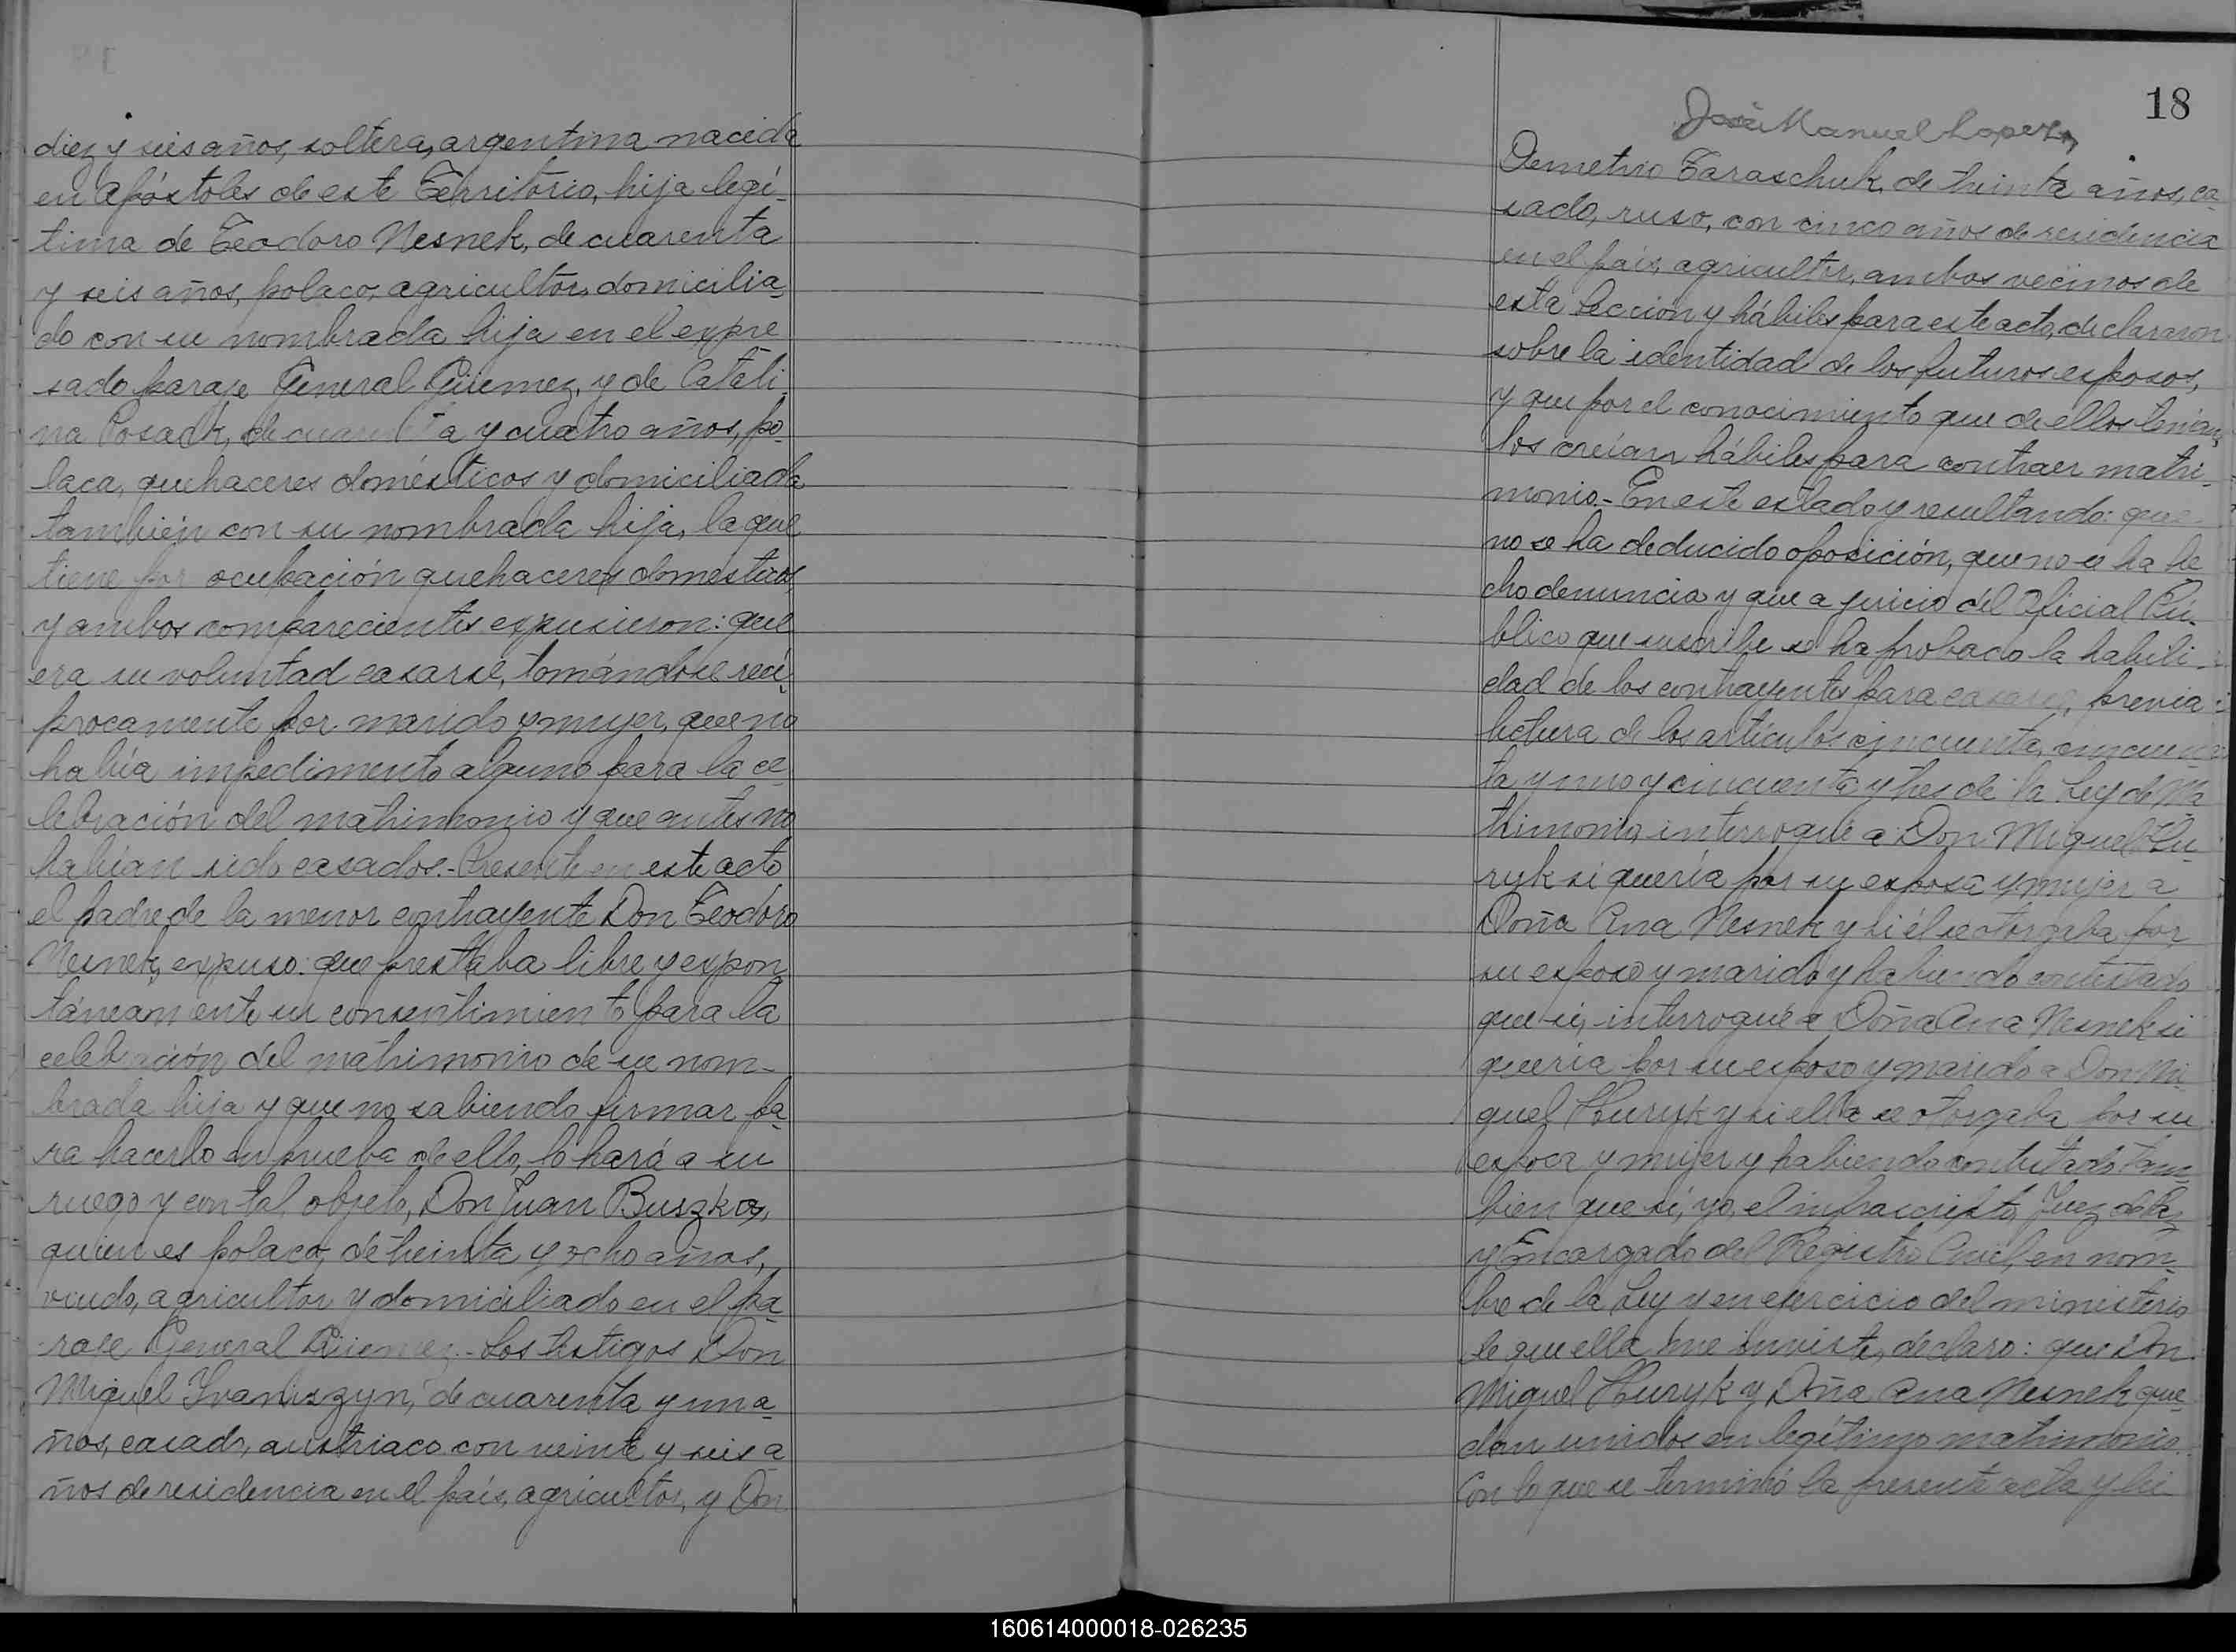 diez y seis años, soltera, argentina nacida
en Apóstoles de este Territorio, hija legí-
tima de Teodoro Nesnek, de cuarenta
y seis años, polaco, agricultor, domicilia-
do con su nombrada hija en el expre
sado paraje General Güemez, y de Catali-
na Posack, de cuarenta y cuatro años, po-
laca, quehaceres domésticos y domiciliada
también con su nombrada hija, la que
tiene por ocupación quehaceres domesticos,
y ambos comparecientes expusieron: que
era su voluntad casarse, tomándose recí-
procamente por marido y mujer, que no
había impedimento alguno para la ce-
lebración del matrimonio y que antes no
habían sido casados.- Presente en este acto
el padre de la menor contrayente Don Teodoro
Nesnek, expuso: que prestaba libre y expon-
táneamente su consentimiento para la
celebración del matrimonio de su nom-
brada hija y que no sabiendo firmar pa-
ra hacerlo en prueba de ello, lo hará a su
ruego y con tal objeto, Don Juan Buszko,
quien es polaco, de treinta y ocho años,
viudo, agricultor y domiciliado en el pa-
raje General Güemez.- Los testigos Don
Miguel Ivaniszyn, de cuarenta y un a-
ños, casado, austriaco con veinte y seis a-
ños de residencia en el país, agricultor, y Don
18
José Manuel Lopez
Demetrio Taraschuk, de treinta años, ca-
sado, ruso, con cinco años de residencia
en el país, agricultor, ambos vecinos de
esta Sección y hábiles para este acto, declararon
sobre la identidad de los futuros esposos,
y que por el conocimiento que de ellos tenían,
los creían hábiles para contraer matri-
monio.- En este estado y resultando: que
no se ha deducido oposición, que no se ha he
cho denuncia y que a juicio del Oficial Pú-
blico que suscribe se ha probado la habili-
dad de los contrayentes para casarse, previa
lectura de los artículos cincuenta, cincuen-
ta y uno y cincuenta y tres de la Ley de Ma
trimonio, interrogué a Don Miguel Hu-
ryk si quería por su esposa y mujer a
Doña Ana Nesnek y si él se otorgaba por
su esposo y marido y habiendo contestado
que si, interrogué a Doña Ana Nesnek si
quería por su esposo y marido a Don Mi-
guel Huryk y si ella se otorgaba por su
esposa y mujer y habiendo contestado tam-
bien que sí, yo, el infrascripto Juez de Paz
y Encargado del Registro Civil, en nom-
bre de la Ley y en ejercicio del ministerio
de que ella me inviste, declaro: que Don
Miguel Huryk y Doña Ana Nesnek que-
dan unidos en legítimo matrimonio.
Con lo que se terminó la presente acta y lei
160614000018-026235